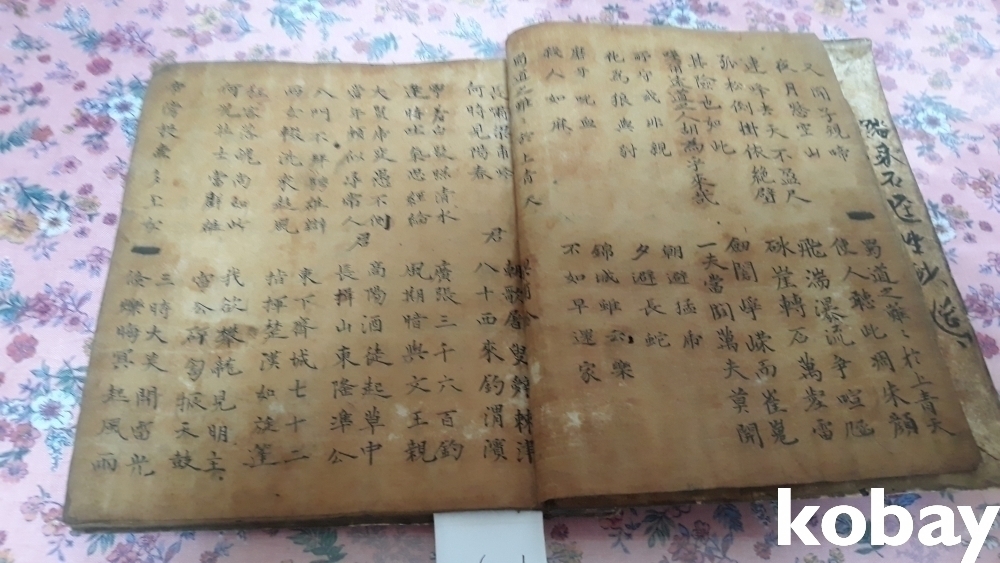 又聞子規啼
夜月愁空山
蜀道之難〻於上青天
使人聽此凋朱顔
連峰去天不盈尺
孤松倒掛依絶壁
飛湍瀑流爭喧豗
砯崖轉石萬壑雷
其險也如此
嗟爾遠道之人胡爲乎來哉
劒閣崢嶸而崔嵬
一夫當関萬夫莫開
所守或非親
化爲狼與豺
朝避猛虎
夕避長蛇
磨牙吮血
殺人如麻
錦城雖云樂
不如早還家
蜀道之難〻於上青天
長嘯梁甫吟
何時見陽春
君
朝歌屠叟辭棘津
八十西來釣渭濱
寧羞白髮照清水
逢時吐氣思經綸
廣張三千六百釣
風期暗與文王親
大賢虎変愚不測
當年頗似尋常人
君
高陽酒徒起草中
長揖山東隆準公
入門不拜騁雄辯
兩女輟洗來趨風
東下齊城七十二
指揮楚漢如旋蓬
狂客落魄尚如此
何況壯士當群雄
我欲攀龍見明主
雷公砰訇振天鼓
帝旁投壺多玉女
三時大笑開雷光
倏爍晦冥起風雨
kobay